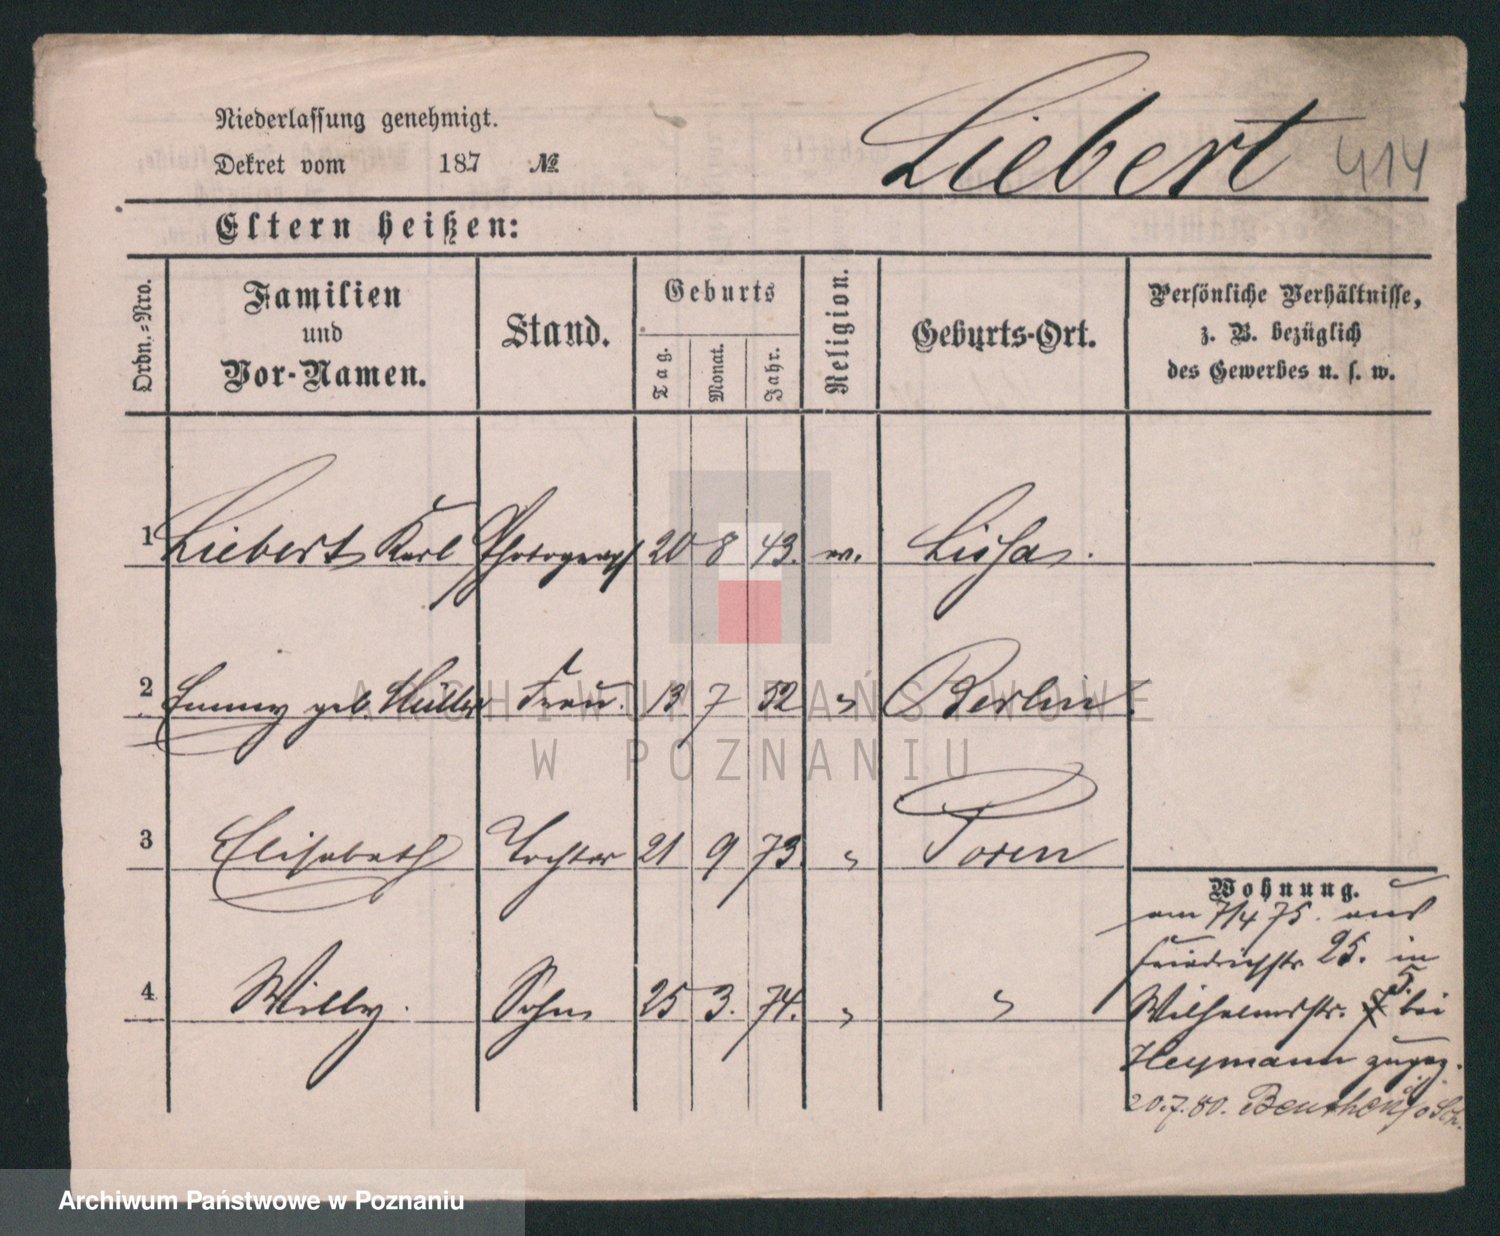 Niederlassung genehmigt.
Dekret vom 187 №
Liebert 414
Eltern heißen:
Ordn.=Nro.
Familien
und
Vor-Namen.
Stand.
Geburts
Tag.
Monat.
Jahr.
Religion.
Geburts-Ort.
Persönliche Verhältnisse,
z. B. bezüglich
des Gewerbes u. s. w.
1 Liebert Karl Photograph 20 8 43. ev. Lissa.
2 Emmy geb. Müller Frau. 13 7 52 " Berlin.
3 Elisabeth Tochter 21 9 73. " Posen
4 Willy. Sohn 25 3. 74. " "
Wohnung.
am 7/4 75. aus
Friedrichstr 25. in
Wilhelmsstr. 5. bei
Heymann zugez.
20.7.80. Beuthen o/Sch.
ARCHIWUM PAŃSTWOWE
W POZNANIU
Archiwum Państwowe w Poznaniu